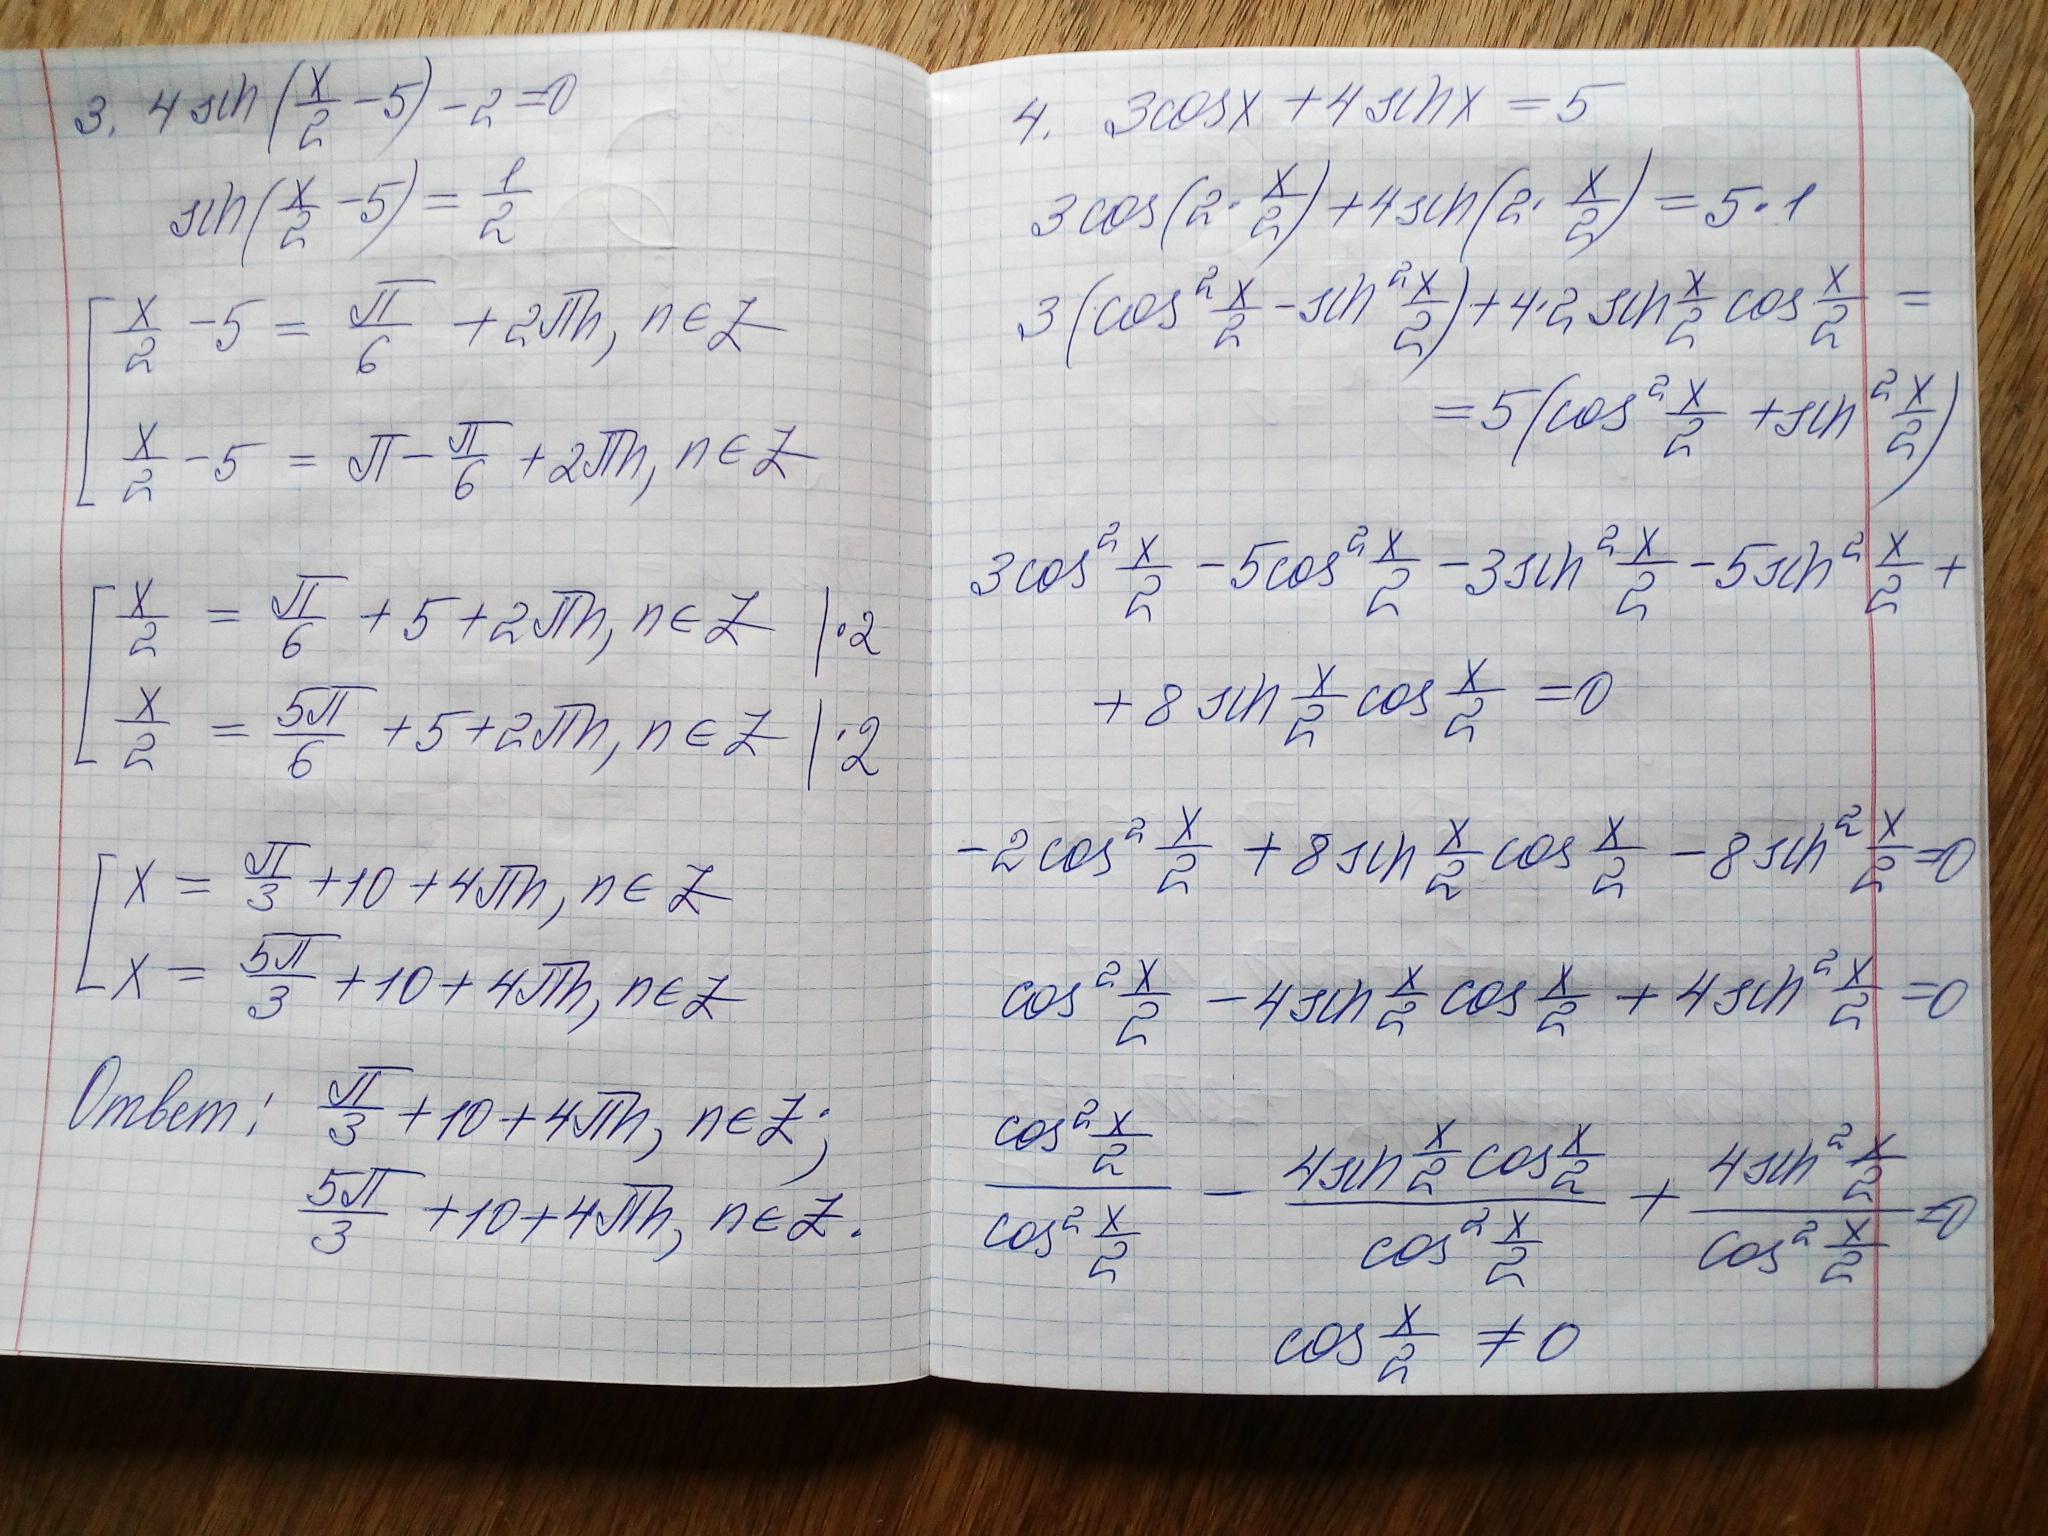 3. 4 sin(x/2 - 5) - 2 = 0
sin(x/2 - 5) = 1/2
[ x/2 - 5 = π/6 + 2πn, n ∈ Z
x/2 - 5 = π - π/6 + 2πn, n ∈ Z
[ x/2 = π/6 + 5 + 2πn, n ∈ Z | ·2
x/2 = 5π/6 + 5 + 2πn, n ∈ Z | ·2
[ x = π/3 + 10 + 4πn, n ∈ Z
x = 5π/3 + 10 + 4πn, n ∈ Z
Ответ: π/3 + 10 + 4πn, n ∈ Z;
5π/3 + 10 + 4πn, n ∈ Z.
4. 3cosx + 4sinx = 5
3cos(2·x/2) + 4sin(2·x/2) = 5·1
3(cos² x/2 - sin² x/2) + 4·2 sin x/2 cos x/2 =
= 5(cos² x/2 + sin² x/2)
3cos² x/2 - 5cos² x/2 - 3sin² x/2 - 5sin² x/2 +
+ 8 sin x/2 cos x/2 = 0
-2cos² x/2 + 8sin x/2 cos x/2 - 8sin² x/2 = 0
cos² x/2 - 4sin x/2 cos x/2 + 4sin² x/2 = 0
(cos² x/2)/(cos² x/2) - (4sin x/2 cos x/2)/(cos² x/2) + (4sin² x/2)/(cos² x/2) = 0
cos x/2 ≠ 0